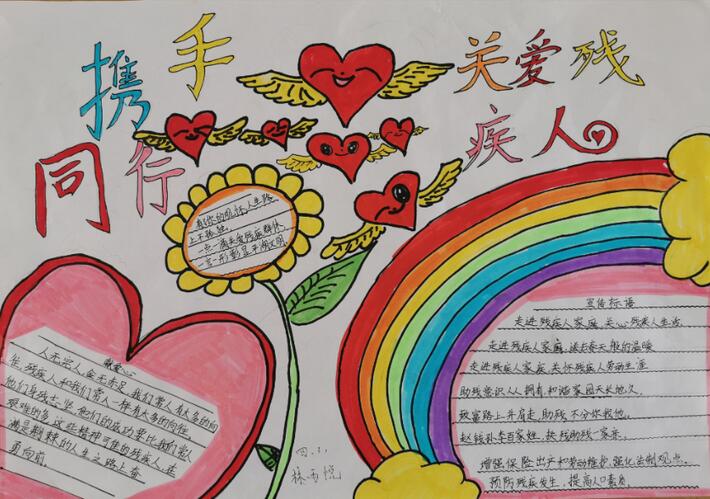 携手
同行
关爱残
疾人
有你的关怀,人生路
上不孤独。
一点一滴关爱残疾群体,
一言一行彰显平湖文明。
献爱心
人无完人,金无足赤,我们常人有太多的向
往,残疾人和我们常人一样有太多的向往。
他们身残志坚,他们的成功要比我们常人
艰难的多,这些精神可佳的残疾人,在
满是荆棘的人生之路上奋
勇向前。
四.3.
林雨悦
宣传标语
走进残疾人家庭,关心残疾人生活。
走进残疾人家庭,送去春天般的温暖
走进残疾人家庭,关怀残疾人劳动生涯
助残意识人人拥有,和谐家园天长地久。
致富路上并肩走,助残不分你我他。
赵钱孙李百家姓,扶残助残一家亲。
增强保险出产和劳动维护,强化法制观点。
预防残疾发生,提高人口素质。